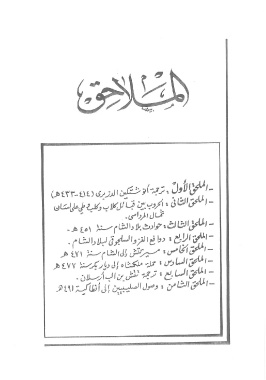 الملاحق
- الملحق الأول : ترجمة أنوشتكين الدزبري (٤١٤-٤٣٣هـ)
- الملحق الثاني : الحروب بين قبائل كلاب وكلب وطي على لسان
شمال المرداسي.
- الملحق الثالث : حوادث بلاد الشام سنة ٤٥١ هـ.
- الملحق الرابع : دوافع الغزو السلجوقي لبلاد الشام.
- الملحق الخامس : مسير تتش إلى الشام سنة ٤٧١ هـ
- الملحق السادس : حملة ملكشاه إلى ديار بكر سنة ٤٧٧
- الملحق السابع : ترجمة تتش بن الب أرسلان.
- الملحق الثامن : وصول الصليبيين إلى أنطاكية ٤٩١هـ